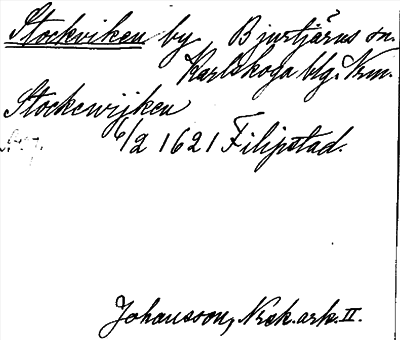 Stockviken by Bjurtjärns sn.
Karlskoga blg. Vrm.
Stockewijken
6/2 1621 Filipstad.
Johansson, Nrsk. ark. II.